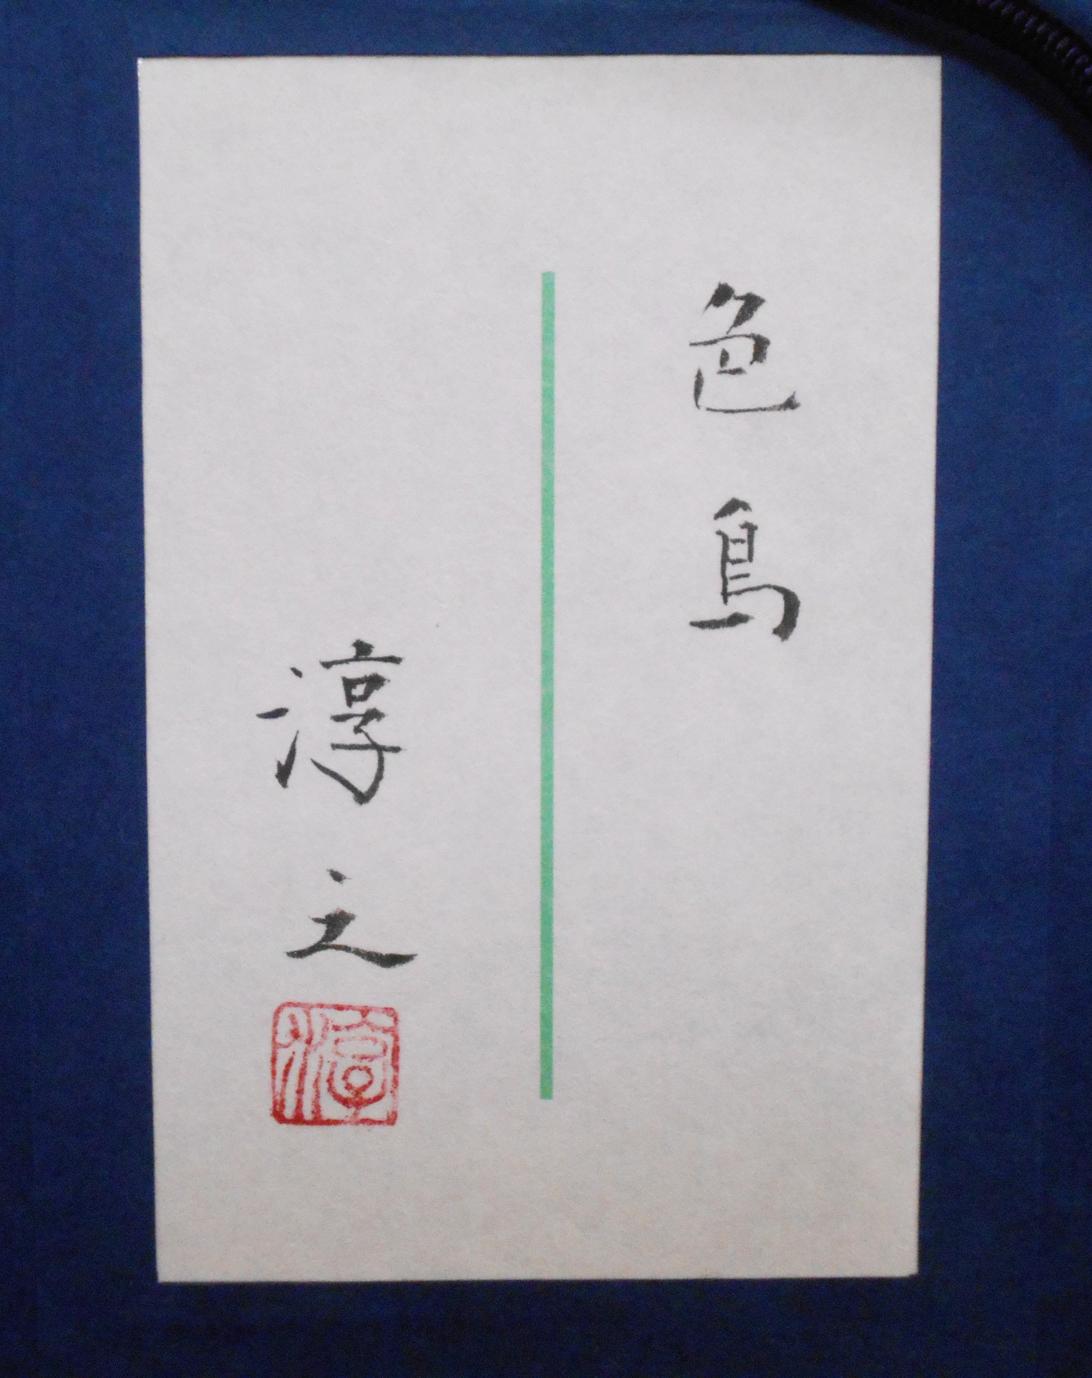 色鳥
淳之
淳